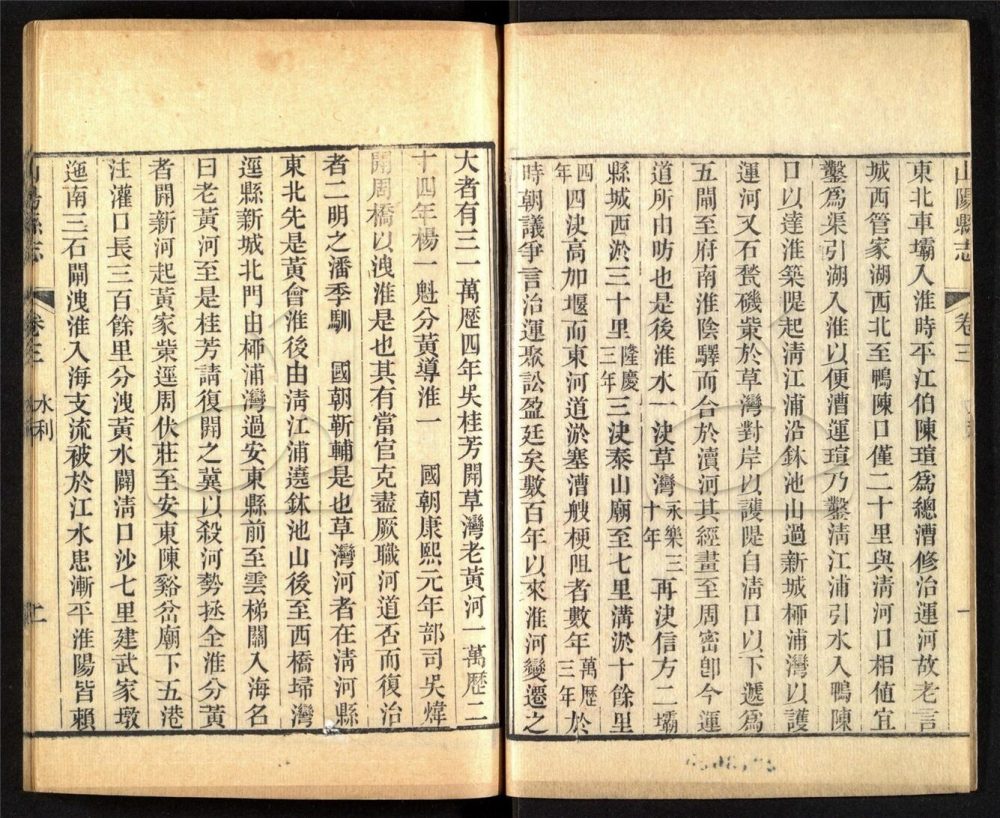 山陽縣志 卷三
東北車壩入淮時平江伯陳瑄爲總漕修治運河故老言
城西管家湖西北至鴨陳口僅二十里與淸河口相値宜
鑿爲渠引湖入淮以便漕運瑄乃鑿淸江浦引水入鴨陳
口以達淮築隄起淸江浦沿鉢池山過新城桞浦灣以護
運河又石甃磯觜於草灣對岸以護隄自淸口以下遞爲
五閘至府南淮陰驛而合於瀆河其經畫至周密卽今運
道所由昉也是後淮水一決草灣永樂三十年再決信方二壩
縣城西淤三十里隆慶三年三決泰山廟至七里溝淤十餘里
四年四決高加堰而東河道淤塞漕艘梗阻者數年萬歷三年於
時朝議爭言治運聚訟盈廷矣數百年以來淮河變遷之
大者有三一萬歷四年吳桂芳開草灣老黃河一萬歷二
十四年楊一魁分黃導淮一 國朝康熙元年部司吳煒
開周橋以洩淮是也其有當官克盡厥職河道否而復治
者二明之潘季馴 國朝靳輔是也草灣河者在淸河縣
東北先是黃會淮後由淸江浦遶鉢池山後至西橋埽灣
逕縣新城北門由桞浦灣過安東縣前至雲梯關入海名
曰老黃河至是桂芳請復開之冀以殺河勢拯全淮分黃
者開新河起黃家觜逕周伏莊至安東陳谿岔廟下五港
注灌口長三百餘里分洩黃水闢淸口沙七里建武家墩
迤南三石閘洩淮入海支流被於江水患漸平淮陽皆賴
山陽縣志 卷三 水利